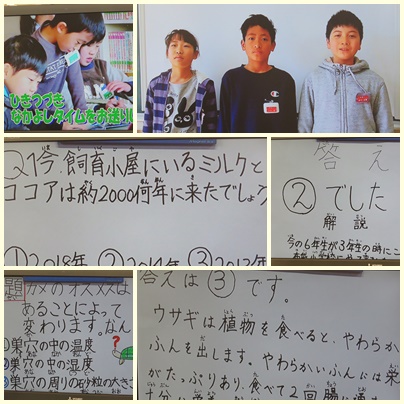 ひきつづき
なかよしタイムをお送りし
Q1今、飼育小屋にいるミルクと
ココアは約2000何年に来たでしょう
①2018年 ②2014年 ③2013年
答え
②でした
解説
今の6年生が3年生の時にこ
題 カメのオスメスは
あることによって
変わります。なん
①巣穴の中の温度
②巣穴の中の湿度
③巣穴の周りの砂粒の大きさ
答えは③です。
ウサギは植物を食べると、やわらか
ふんを出します。やわらかいふんには栄
がたっぷりあり、食べて2回腸に通